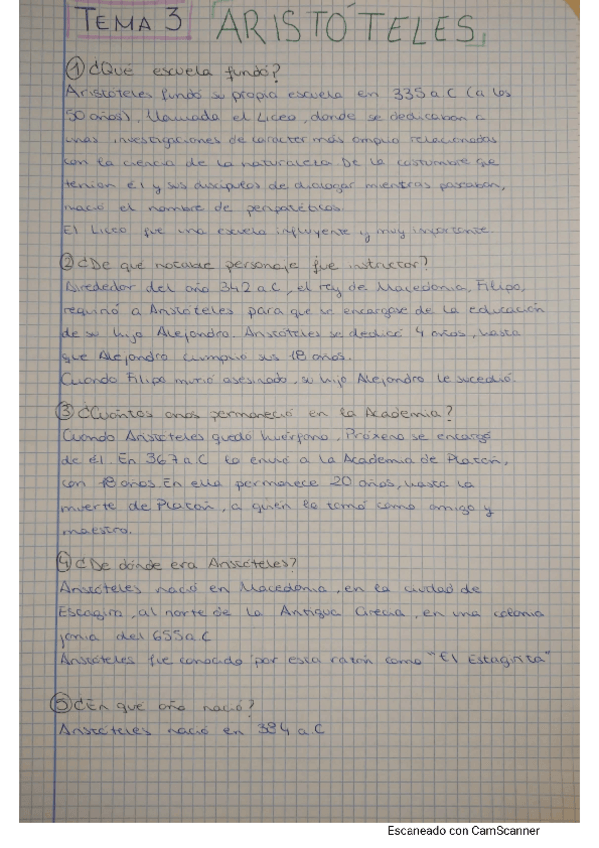 TEMA 3 ARISTÓTELES
① ¿Qué escuela fundó?
Aristóteles fundó su propia escuela en 335 a C (a los
50 años), llamada el Liceo, donde se dedicaban a
unas investigaciones de carácter más amplio relacionadas
con la ciencia de la naturaleza. De la costumbre que
tenían él y sus discípulos de dialogar mientras paseaban,
nació el nombre de peripatéticos.
El Liceo fue una escuela influyente y muy importante.
② ¿De qué notable personaje fue instructor?
Alrededor del año 342 a.C, el rey de Macedonia, Filipo,
requirió a Aristóteles para que se encargase de la educación
de su hijo Alejandro. Aristóteles se dedicó 4 años, hasta
que Alejandro cumplió sus 18 años.
Cuando Filipo murió asesinado, su hijo Alejandro le sucedió.
③ ¿Cuántos años permaneció en la Academia?
Cuando Aristóteles quedó huérfano, Próxeno se encargó
de él. En 367 a.C lo envió a la Academia de Platón,
con 18 años. En ella permanece 20 años, hasta la
muerte de Platón, a quien le tomó como amigo y
maestro.
④ ¿De dónde era Aristóteles?
Aristóteles nació en Macedonia, en la ciudad de
Estagira, al norte de la Antigua Grecia, en una colonia
jonia del 655 a.C
Aristóteles fue conocido por esta razón como "El Estagirita"
⑤ ¿En qué año nació?
Aristóteles nació en 384 a.C
Escaneado con CamScanner